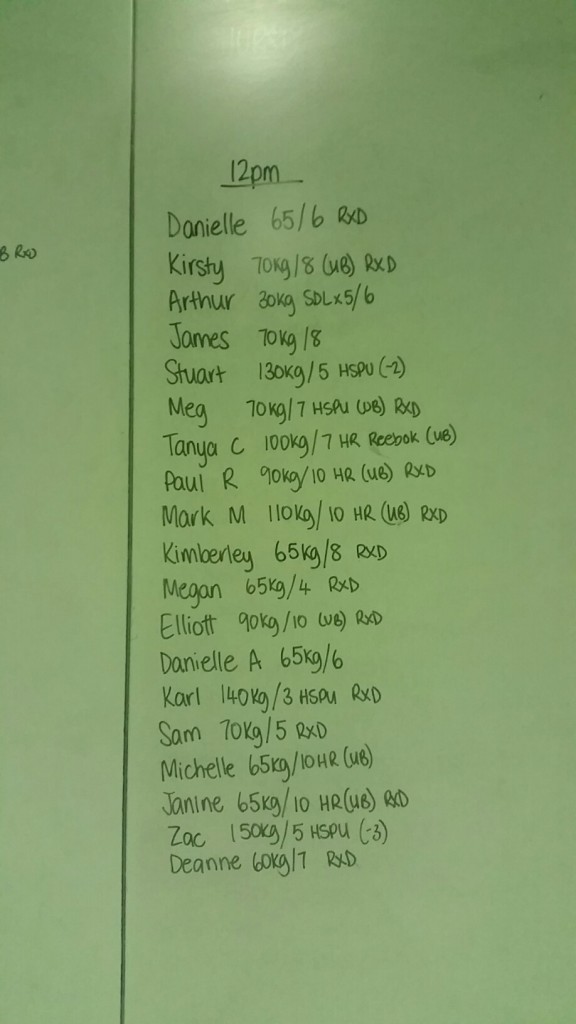 12pm
Danielle 65/6 RXD
B RXD
Kirsty 70kg/8 (UB) RXD
Arthur 30kg SDLx5/6
James 70kg/8
Stuart 130kg/5 HSPU (-2)
Meg 70kg/7 HSPU (UB) RXD
Tanya C 100kg/7 HR Reebok (UB)
Paul R 90kg/10 HR (UB) RXD
Mark M 110kg/10 HR (UB) RXD
Kimberley 65kg/8 RXD
Megan 65kg/4 RXD
Elliott 90kg/10 (UB) RXD
Danielle A 65kg/6
Karl 140kg/3 HSPU RXD
Sam 70kg/5 RXD
Michelle 65kg/10HR (UB)
Janine 65kg/10 HR(UB) RXD
Zac 150kg/5 HSPU (-3)
Deanne 60kg/7 RXD